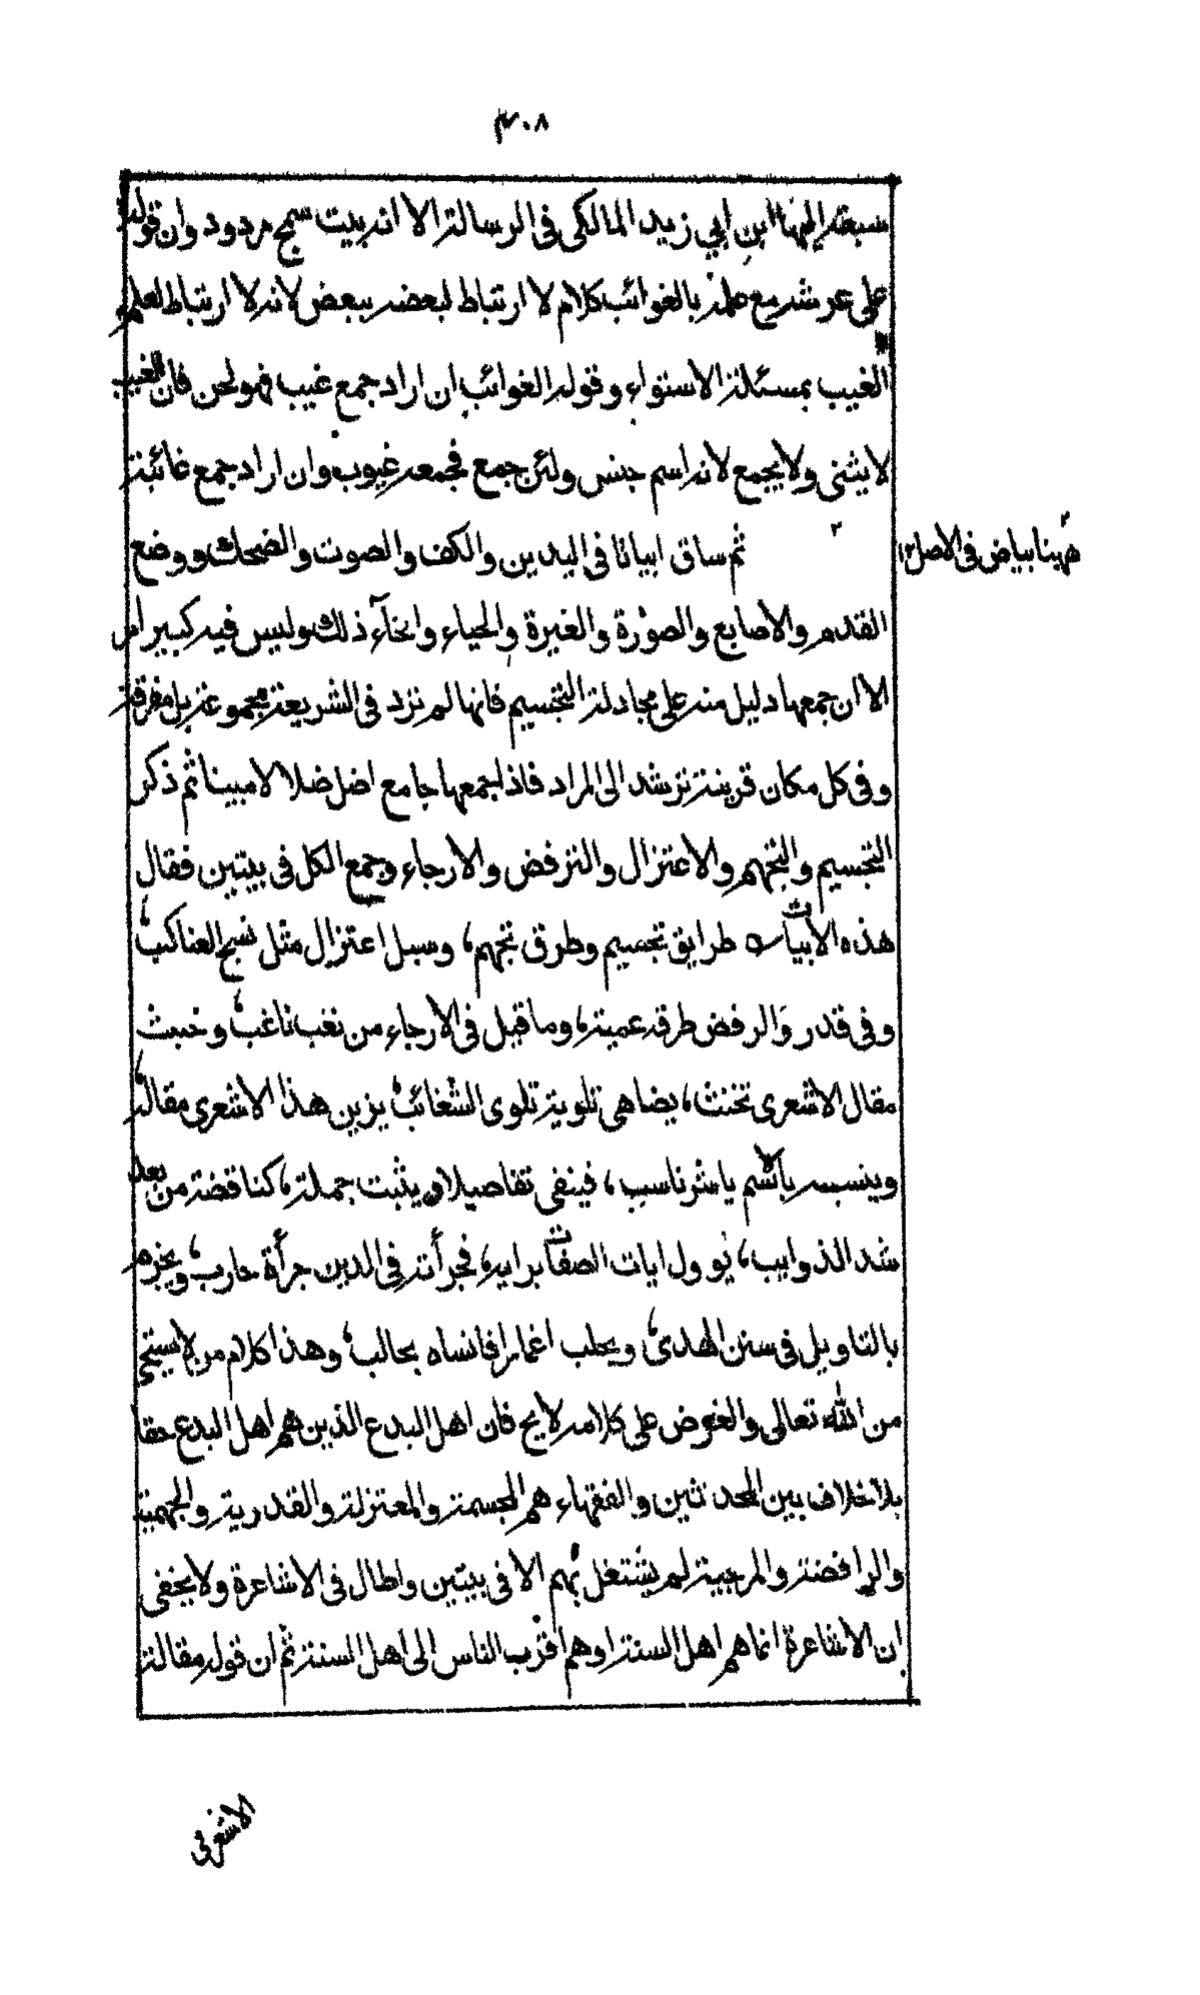 ٣٠٨
سبقه إليها ابن ابي زيد المالكى فى الرسالة الا انه بيت سمج مردود وان قوله
على عرشه مع علمه بالغوائب كلام لا ارتباط لبعضه ببعض لانه لا ارتباط لعلم
الغيب بمسئلة الاستواء وقوله الغوائب ان اراد جمع غيب فهو لحن فان الغيب
لا يثنى ولا يجمع لانه اسم جنس ولئن جمع فجمعه غيوب وان اراد جمع غائبة
٢ ثم ساق ابياتا فى اليدين والكف والصوت والضحك ووضع
٢ ههنا بياض فى الاصل ١٢
القدم والاصابع والصورة والغيرة والحياء وانحاء ذلك وليس فيه كبير امر
الا ان جمعها دليل منه على مجادلة التجسيم فانها لم ترد فى الشريعة مجموعة بل مفرقة
وفى كل مكان قرينة ترشد الى المراد فاذا جمعها جامع اضل ضلالا مبينا ثم ذكر
التجسيم والتجهم والاعتزال والترفض والارجاء وجمع الكل فى بيتين فقال
هذه الابيات طرايق تجسيم وطرق تجهم، وسبل اعتزال مثل نسج العناكب،
وفى قدر والرفض طرق عمية، وما قيل فى الارجاء من نغب ناغب، وخبث
مقال الاشعرى تخنث، يضاهى تلويه تلوى الشغائب، يزين هذا الاشعرى مقاله
وينسبه بالاشم ياشر ناسب، فينفى تفاصيلا ويثبت جملة، كناقضة من بعد
شد الذوايب، يؤول ايات الصفات برايه، فجرأته فى الدين جرأة حارب، ويجزم
بالتاويل فى سنن الهدى، ويحلب اغمارا فانساه بحالب، وهذا كلام من لا يستحى
من الله تعالى والغوض على كلامه لايح فان اهل البدع الذين هم اهل البدع حقا
بلا خلاف بين المحدثين والفقهاء هم المجسمة والمعتزلة والقدرية والجهمية
والرافضة والمرجية لم يشتغل بهم الا فى بيتين واطال فى الاشاعرة ولا يخفى
ان الاشاعرة انما هم اهل السنة او هم اقرب الناس الى اهل السنة ثم ان قوله مقالة
الاشعرى